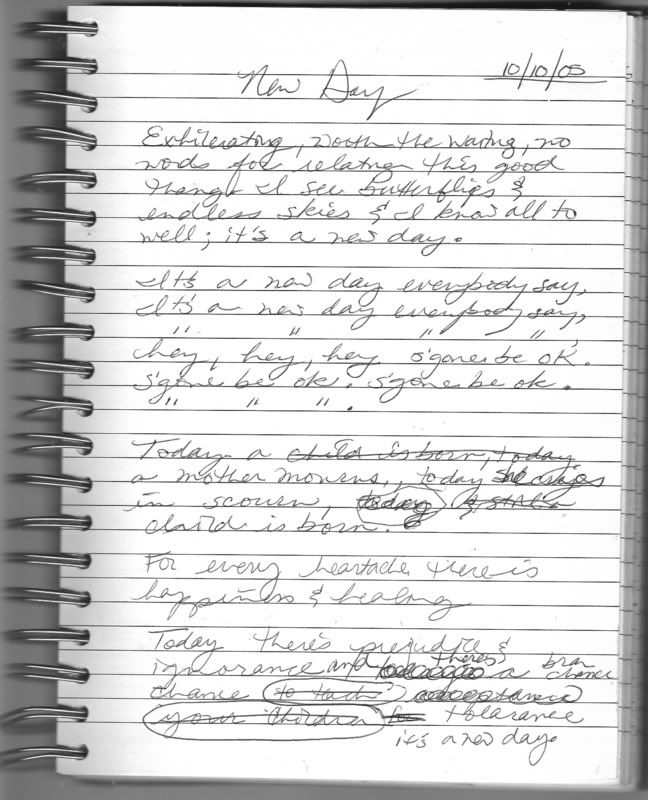 10/10/05
New Day
Exhilerating, worth the waring, no
words for relating this good
thang. I see butterflips &
endless skies & I know all to
well; it's a new day.
It's a new day everybody say,
It's a new day everybody say,
" " " ",
hey, hey, hey s'gone be ok.
s'gone be ok. s'gone be ok.
" " ".
Today a child is born, today
a mother mourns, today she
in scourn, today
child is born.
For every heartache there is
happiness & healing
Today there's prejudice &
ignorance and there's a bran
chance
chance to teach acceptance
your children for tolarance
it's a new day.